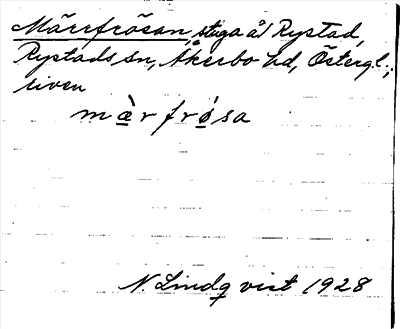 Märrfrösan, stuga å Rystad,
Rystads sn, Åkerbo hd, Östergl.;
riven
màrfrǿsa
N. Lindqvist 1928